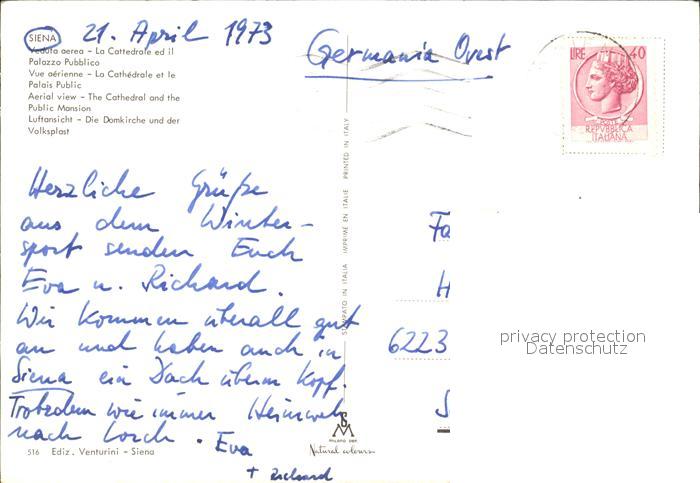 SIENA 21. April 1973
Veduta aerea - La Cattedrale ed il
Palazzo Pubblico
Vue aérienne - La Cathédrale et le
Palais Public
Aerial view - The Cathedral and the
Public Mansion
Luftansicht - Die Domkirche und der
Volksplast
Germania Ovest
LIRE 40
POSTE
REPVBBLICA
ITALIANA
Herzliche Grüße
aus dem Winter-
sport senden Euch
Eva u. Richard.
Wir kommen überall gut
an und haben auch in
Siena ein Dach überm Kopf.
Trotzdem wie immer Heimweh
nach Lorch. Eva
+ Richard
STAMPATO IN ITALIA IMPRIMÉ EN ITALIE PRINTED IN ITALY
Fa
H
6223
privacy protection
Datenschutz
SM
Natural colours
516 Ediz. Venturini - Siena